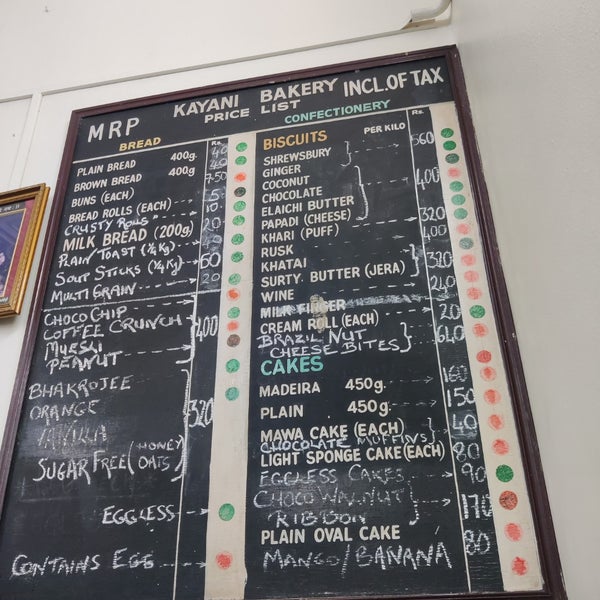 KAYANI BAKERY INCL.OF TAX
MRP PRICE LIST
CONFECTIONERY
BREAD Rs.
PLAIN BREAD 400g. 40
BROWN BREAD 400g
BUNS (EACH)
BREAD ROLLS (EACH)
CRUSTY ROLLS
MILK BREAD (200g)
PLAIN TOAST (1/4 Kg)
SOUP STICKS (1/4 Kg) 60
MULTI GRAIN 20
CHOCO CHIP
COFFEE CRUNCH 400
MUESLI
PEANUT
BHAKROJEE
ORANGE
VANILLA 320
SUGAR FREE (HONEY
OATS)
EGGLESS
CONTAINS EGG
BISCUITS PER KILO Rs.
SHREWSBURY 560
GINGER
COCONUT 400
CHOCOLATE
ELAICHI BUTTER
PAPADI (CHEESE) 320
KHARI (PUFF) 400
RUSK
KHATAI 320
SURTY. BUTTER (JERA)
WINE 240
MILK FINGER
CREAM ROLL (EACH) 20
BRAZIL NUT 640
CHEESE BITES
CAKES
MADEIRA 450g. 160
PLAIN 450g. 150
MAWA CAKE (EACH) 40
CHOCOLATE MUFFINS
LIGHT SPONGE CAKE (EACH) 80
EGGLESS CAKES 90
CHOCO WALNUT 170
RIBBON
PLAIN OVAL CAKE 80
MANGO/BANANA